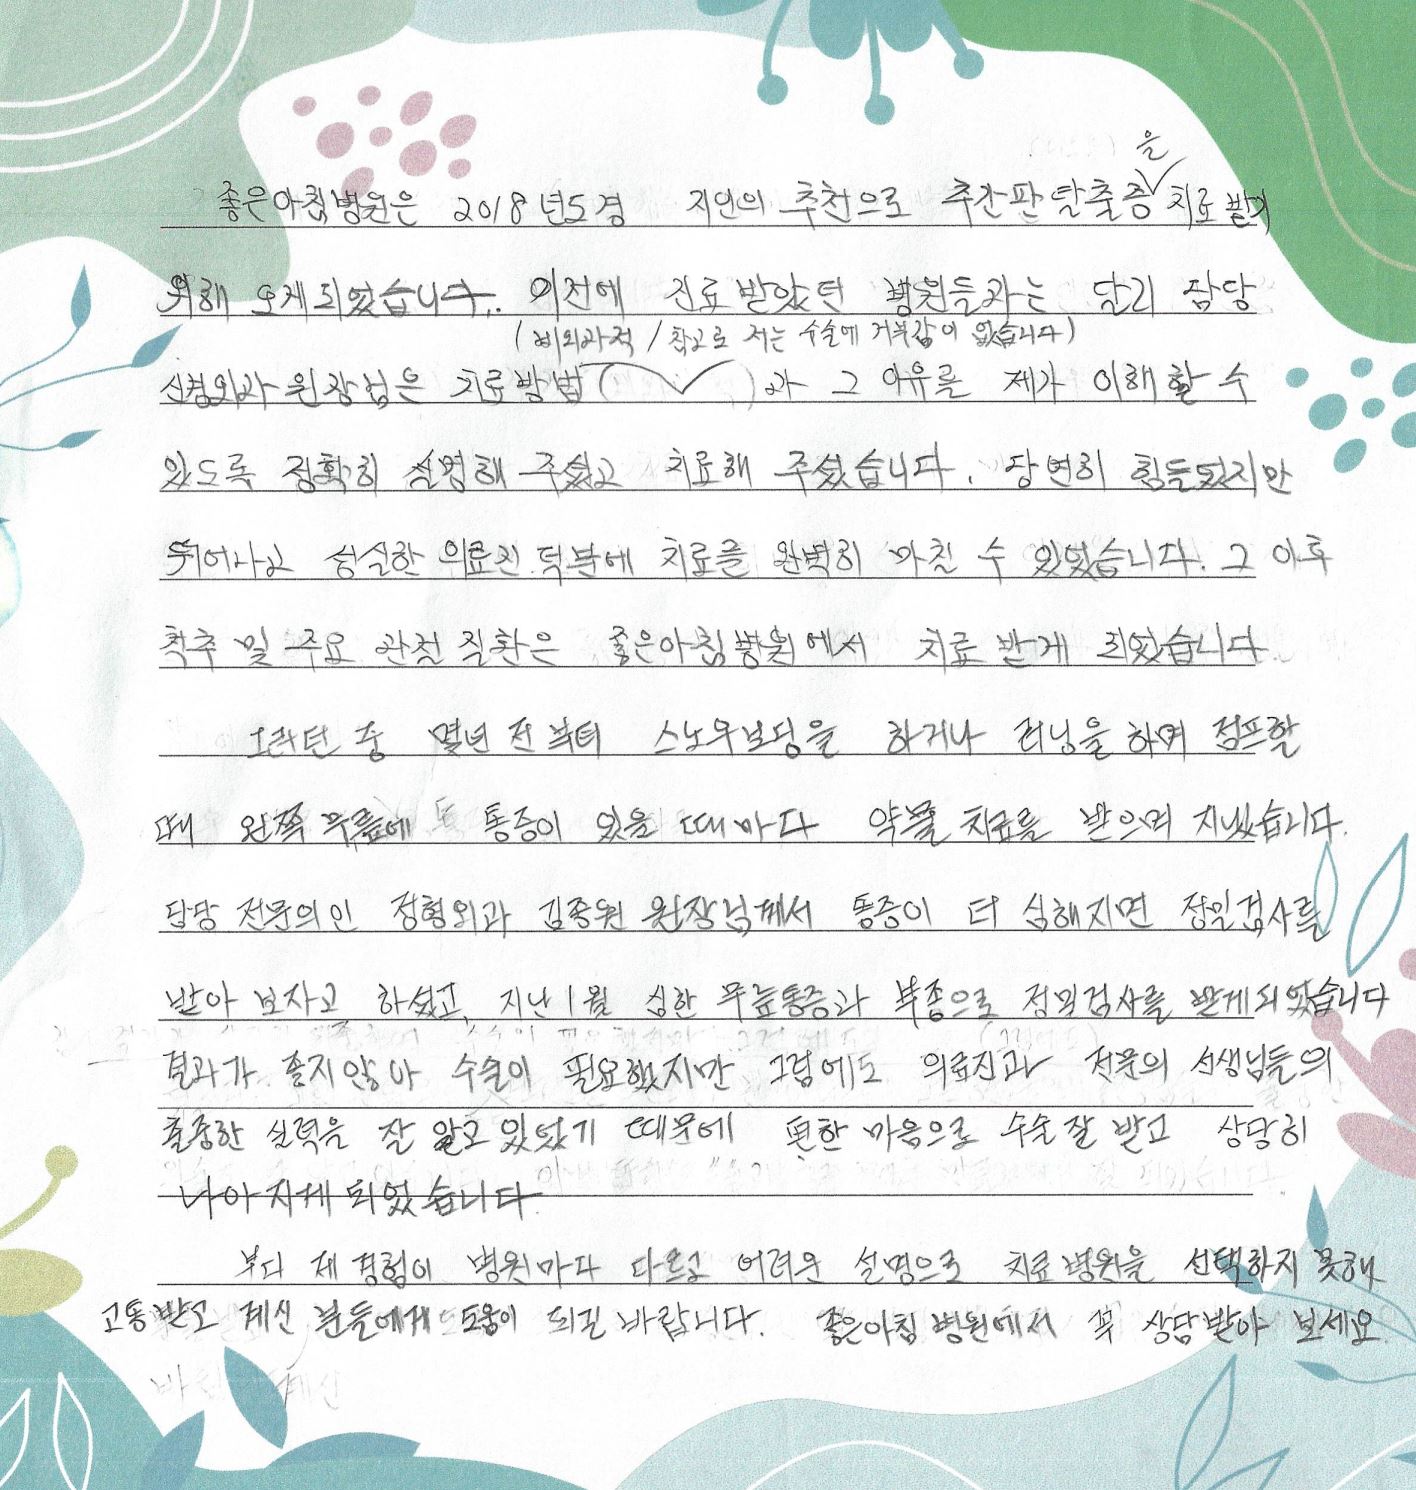 을
좋은아침병원은 2018년도경 지인의 추천으로 추간판탈출증 치료받기
위해 오게되었습니다. 이전에 진료 받았던 병원들과는 달리 담당
(비외과적 / 참고로 저는 수술에 거부감이 없습니다)
신경외과 원장님은 치료방법( )과 그 이유를 제가 이해할 수
있도록 정확히 설명해 주셨고 치료해 주셨습니다. 당연히 힘들었지만
뛰어나고 성실한 의료진 덕분에 치료를 완벽히 마칠 수 있었습니다. 그 이후
척추 및 주요 관절 질환은 좋은아침병원에서 치료 받게 되었습니다.
그러던 중 몇년 전부터 스노우보딩을 하거나 러닝을 하며 점프할
때 왼쪽 무릎에 통증이 있을 때마다 약물 치료를 받으며 지냈습니다.
담당 전문의인 정형외과 김종원 원장님께서 통증이 더 심해지면 정밀검사를
받아 보자고 하셨고, 지난 1월 심한 무릎통증과 부종으로 정밀검사를 받게되었습니다
결과가 좋지 않아 수술이 필요했지만 그럼에도 의료진과 전문의 선생님들의
출중한 실력을 잘 알고 있었기 때문에 편한 마음으로 수술 잘 받고 상당히
나아지게 되었습니다.
부디 제 경험이 병원마다 다르고 어려운 설명으로 치료병원을 선택하지 못해
고통받고 계신 분들에게 도움이 되길 바랍니다. 좋은아침병원에서 꼭 상담받아 보세요.